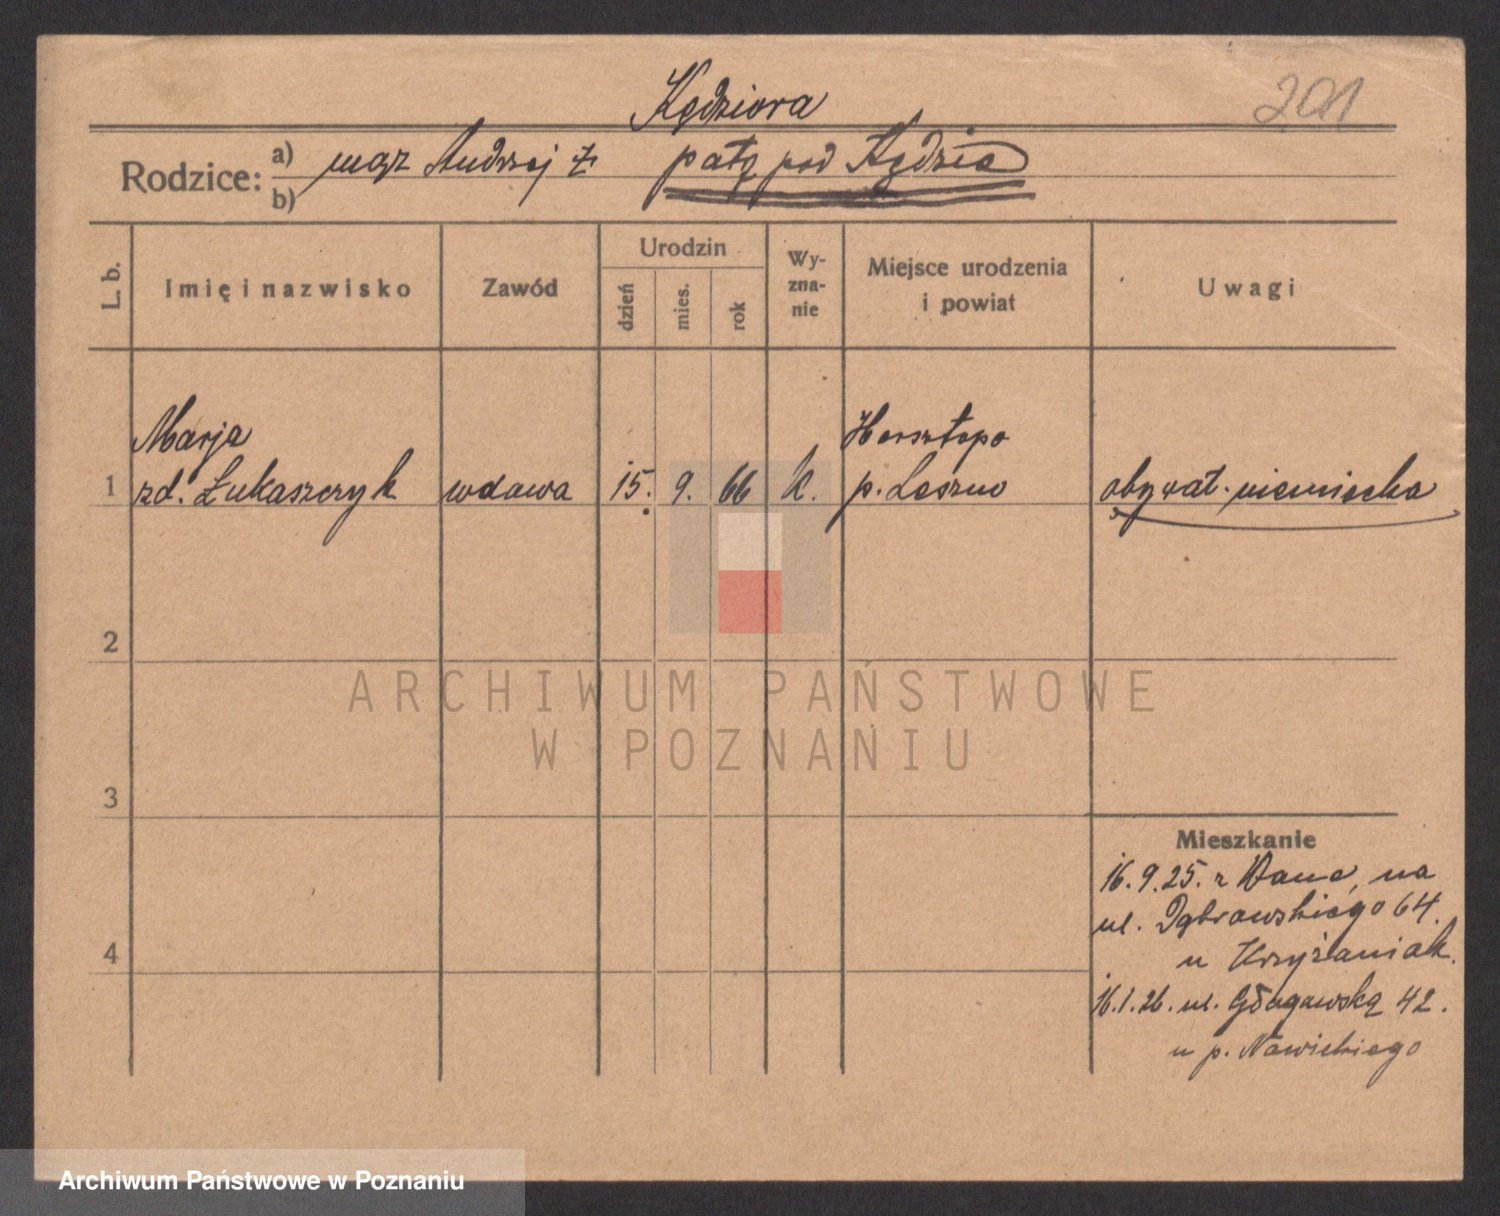 Kędziora
201
Rodzice: a) mąż Andrzej ż. patz pod Kędzia
b)
L. b. Imię i nazwisko Zawód Urodzin dzień mies. rok Wy-zna-nie Miejsce urodzenia i powiat Uwagi
Marja Horsztopo
1 zd. Łukaszczyk wdowa 15. 9. 66 k. p. Leszno obywat. niemiecka
2
ARCHIWUM PAŃSTWOWE
W POZNANIU
3
Mieszkanie
16.9.25. z na
ul. Dąbrowskiego 64.
4 u Krzyżaniak.
16.1.26. ul. Głogowską 42.
u p. Nowickiego
Archiwum Państwowe w Poznaniu